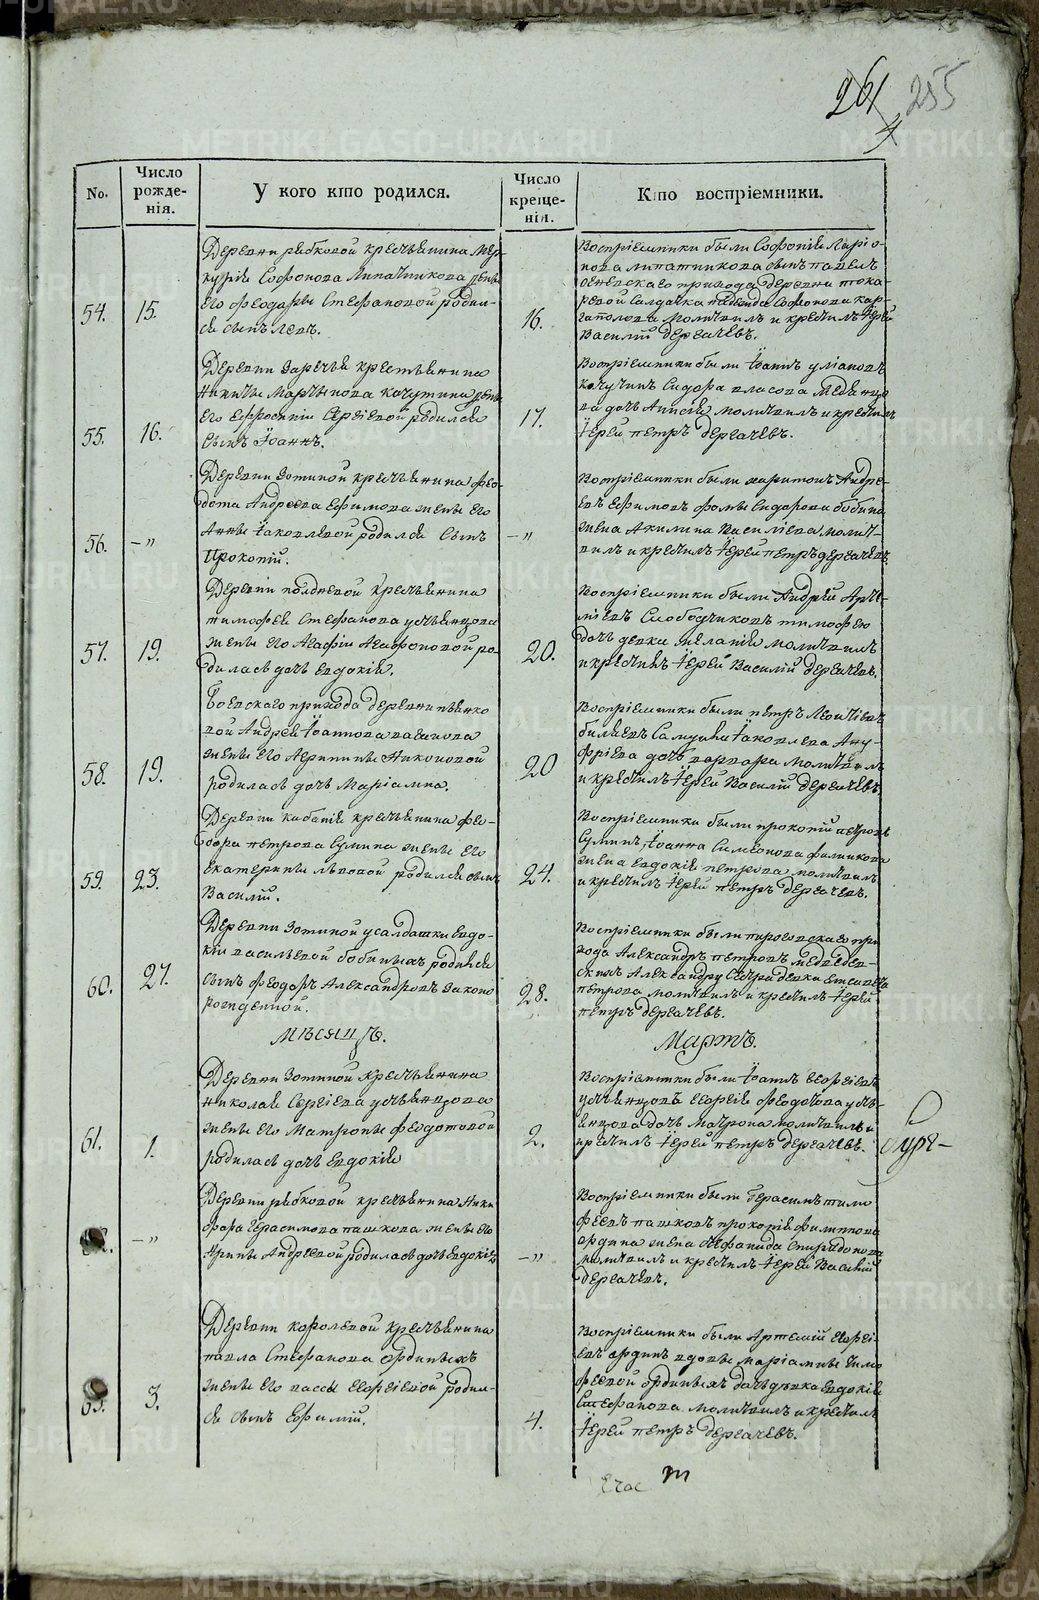 261 255
4
No.
Число рожде-
нія.
У кого кто родился.
Число
креще-
нія.
Кто воспріемники.
54.
15.
Деревни рыбковой крестьянина Мер-
курія Софонова Липатникова жены
его Феодоры Стефановой родил-
ся сынъ Левъ.
16.
Воспріемники были Софоній Ларіо-
нова липатникова сынъ павелъ
прихода деревни тока-
ревой Салдатка Софонова кар-
гаполова молитвилъ и крестилъ Іерей
Василий дергачевъ.
55.
16.
Деревни Заречья крестьянина
Никиты Мартынова кочутина жены
его Ефросиніи Сергіевой родился
сынъ Іоаннъ.
17.
Воспріемники были Іоаннъ уліановъ
кочутинъ Сидора власова
дочь Анисія молитвилъ и крестилъ
Іерей петръ дергачевъ.
56.
-"
Деревни Зотиной крестьянина Фео-
дота Андреева Ефимова жены его
Анны Іаковлевой родился сынъ
Прокопій.
-"
Воспріемники были харитонъ Андре-
евъ Ефимовъ фомы Сидорова бобина
жена Акилина Василіева молит-
вилъ и крестилъ Іерей петръ дергачевъ.
57.
19.
Деревни полдневой крестьянина
тимофея Стефанова устьянцова
жены его Агафіи Агафоновой ро-
дилась дочь Евдокія.
20.
Воспріемники были Андрей Арте-
міевъ Слободчиковъ тимофею
дочь девка меланія молитвилъ
и крестилъ Іерей Василій дергачевъ.
58.
19.
прихода деревни пьянко-
вой Андрея Іоаннова
жены его Агрипины Никоновой
родилась дочь Маріамна.
20
Воспріемники были петръ Леонтіевъ
биляевъ Іаковлева Ану-
фріева дочь варвара молитвилъ
и крестилъ Іерей Василій дергачевъ.
59.
23.
Деревни кабаніи крестьянина фео-
дора петрова Сулина жены его
екатерины львовой родился сынъ
Василій.
24.
Воспріемники были прокопій петровъ
Сулинъ Іоанна Симеонова филинкова
жена евдокія петрова молитвилъ
и крестилъ Іерей петръ дергачевъ.
60.
27.
Деревни Зотиной у салдатки Евдо-
кіи васильевой бобиныхъ родился
сынъ феодоръ Александровъ законо
рожденной.
28.
Воспріемники были пироговскаго при
хода Александръ петровъ медведев-
скихъ Александру сестра девка Елисавета
петрова молитвилъ и крестилъ Іерей
петръ дергачевъ.
Мѣсяцъ.
Мартъ.
61.
1.
Деревни Зотиной крестьянина
николая Сергіева устьянцова
жены его Матроны федотовой
родилась дочь евдокія
2.
Воспріемники были Іоаннъ Георгіевъ
устьянцовъ Георгія Феодотова усть-
янцова дочь Матрона молитвилъ и
крестилъ Іерей петръ дергачевъ.
-"
Деревни рыбковой крестьянина Ники-
фора Герасимова пашкова жены его
Ирины Андреевой родилась дочь Евдокія
-"
Воспріемники были Герасимъ тимо
феевъ пашковъ прокопія филипова
ордина жена Стефанида Спиридонова
молитвилъ и крестилъ Іерей Василій
дергачевъ.
63.
3.
Деревни королевой крестьянина
павла Стефанова ординыхъ
жены его вассы Георгіевой родил-
ся сынъ Ефимій.
4.
Воспріемники были Артемій Георгі-
евъ ординъ вдовы маріамны тимо
феевой ординыхъ дочь девка Евдокія
Стефанова. молитвилъ и крестилъ
Іерей петръ дергачевъ.
METRIKI.GASO-URAL.RU